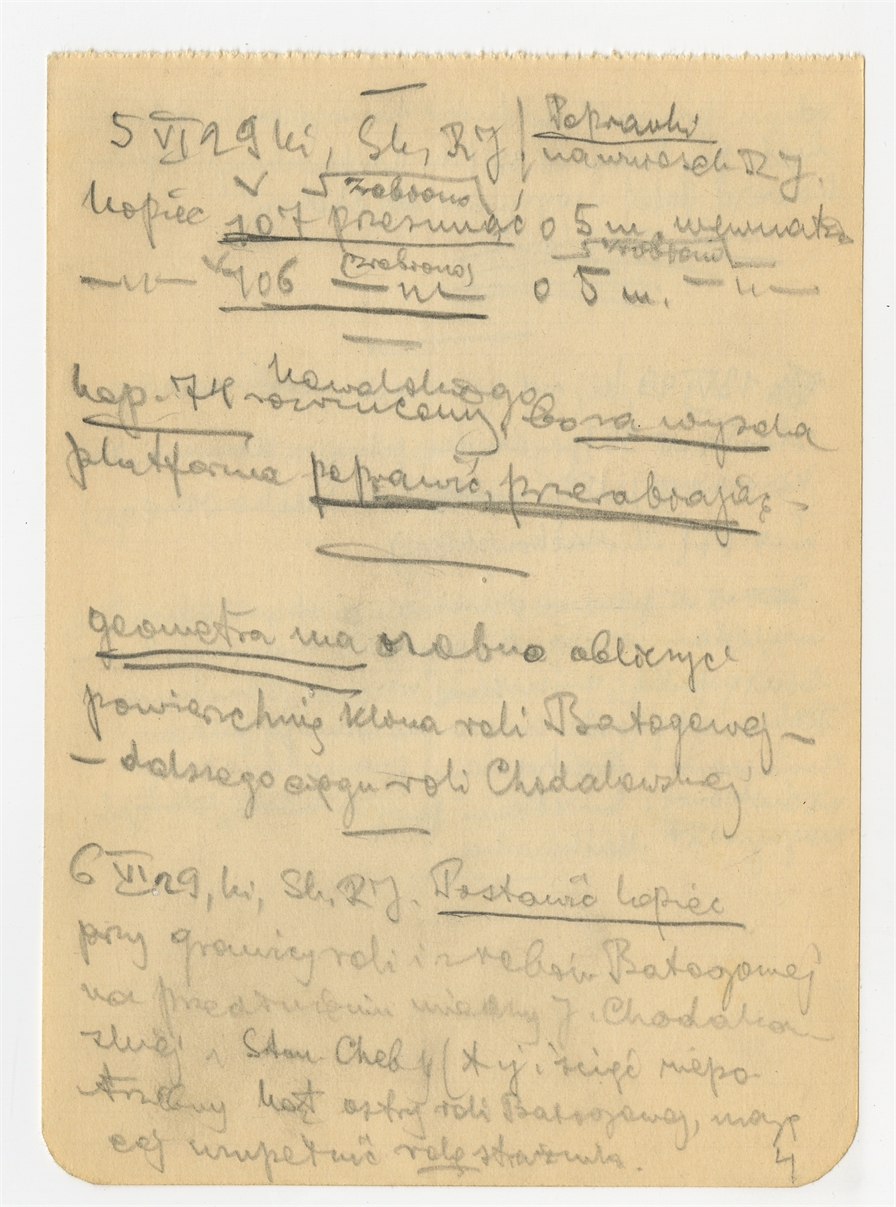 5 VI 29 ki, Sk, RJ, Poprawki
na wniosek RJ.
zrobiono
kopiec 107 przesunąć o 5 m. wewnątrz
zrobiono zrobiono
—"— 106 —"— o 5 m. —"—
Kowalskiego
kop. 74 rozrzucony, wysoka
platforma poprawić, przerabiając –
geometra ma osobno obliczyć
powierzchnię klina roli Batogowej –
– dalszego ciągu roli Chodakowskiej
6 VI 29, ki, Sk, RJ. Postawić kopiec
przy granicy roli i zrębów Batogowej
na przedłużeniu miedzy J. Chodakow
skiej i Stan. Cheb (t.j. ściąć niepo
trzebny kąt ostry roli Batogowej, mają
cej uzupełnić rolę strażnika.
4